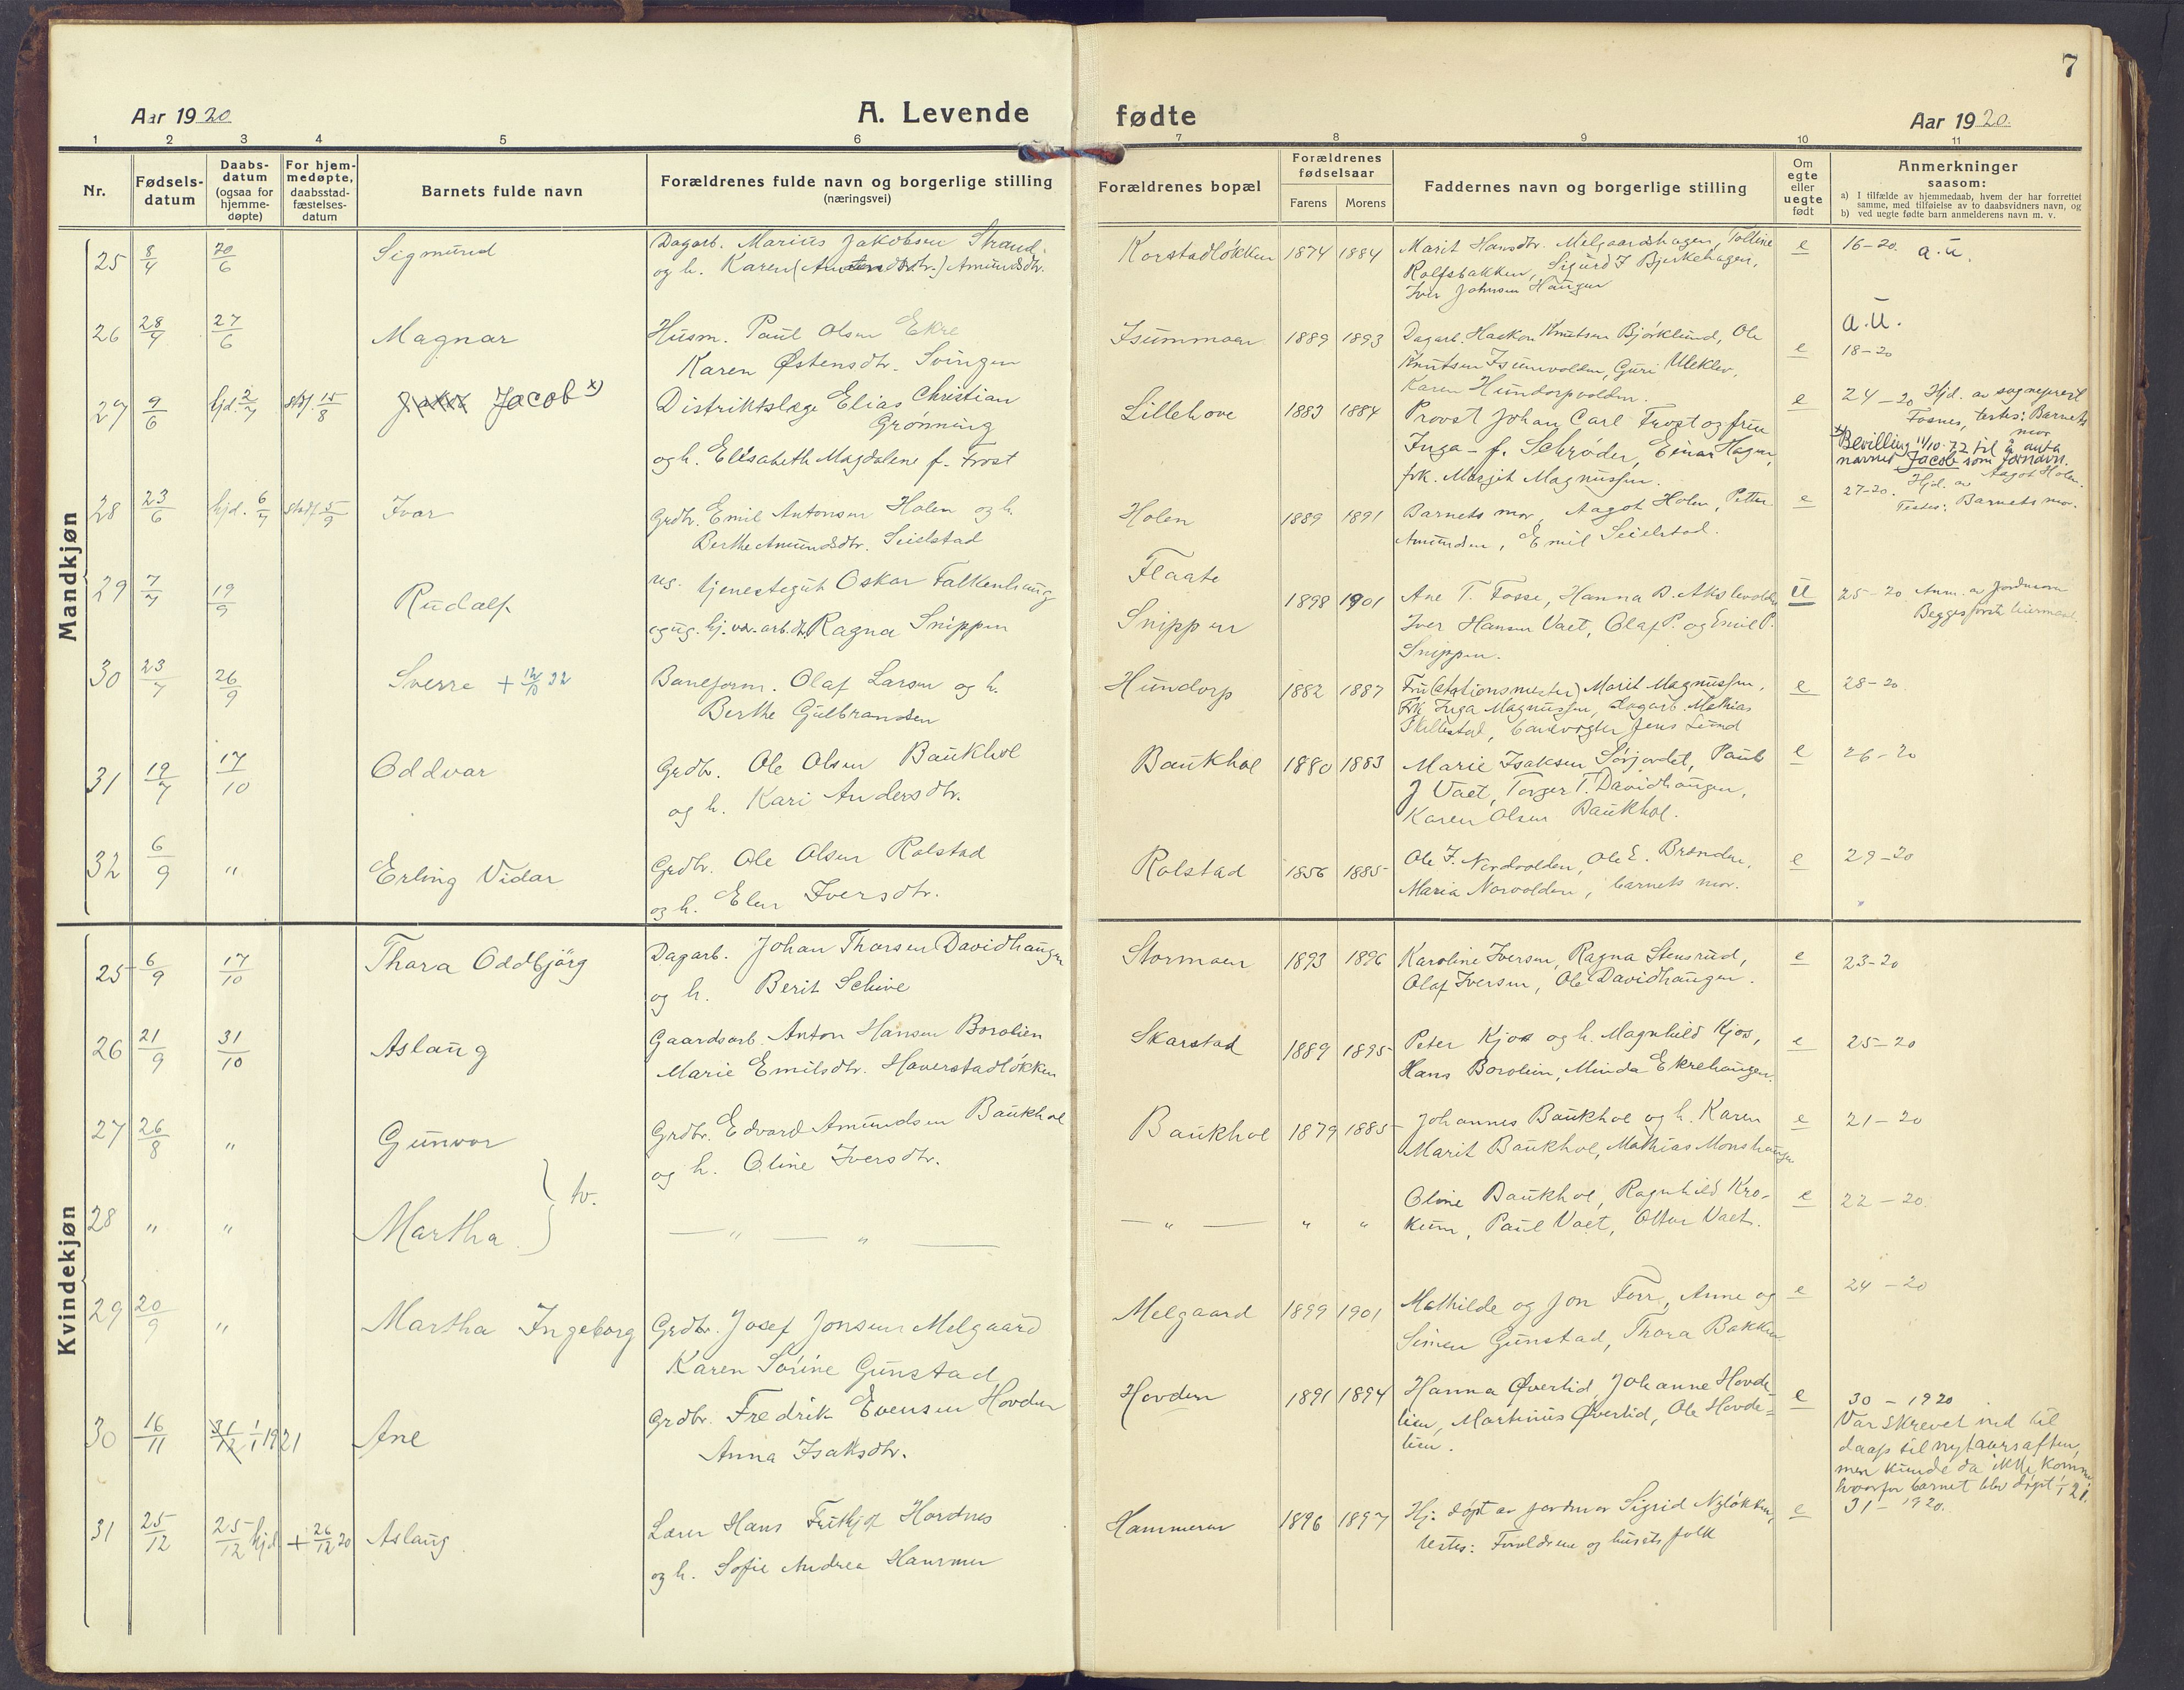 7
Aar 1920
A. Levende
fødte
Aar 1920.
1 2 3 4 5 6 7 8 9 10 11
Nr.
Fødsels-
datum
Daabs-
datum
(ogsaa for
hjemme-
døpte)
For hjem-
medøpte,
daabsstad-
fæstelses-
datum
Barnets fulde navn
Forældrenes fulde navn og borgerlige stilling
(næringsvei)
Forældrenes bopæl
Forældrenes
fødselsaar
Farens
Morens
Faddernes navn og borgerlige stilling
Om
egte
eller
uegte
født
Anmerkninger
saasom:
a) I tilfælde av hjemmedaab, hvem der har forrettet
samme, med tilføielse av to daabsvidners navn, og
b) ved uegte fødte barn anmelderens navn m. v.
Mandkjøn
25 8/4 20/6 Sigmund Dagarb. Marius Jakobsen Strand. Korstadløkken 1874 1884 Marit Hansdtr. Melgaardshagen, Tolline e 16-20. a.u.
og h. Karen Amundsdtr. Rolfsbakken, Sigurd J Bjerkehagen,
Iver Johnsen Haugen
26 28/4 27/6 Magnar Husm. Paul Olsen Ekre Isummoen 1889 1893 Dagarb. Haakon Knutsen Bjørklund, Ole e a.u.
Karen Østensdtr. Svingen Knutsen Isumvolden, Guri Uleklev, 18-20
Karen Hundorpvolden.
27 9/6 hjd. 2/7 stdf. 15/8 Jacob x) Distriktslæge Elias Christian Lillehove 1883 1884 Provst Johan Carl Frost og frue e 24-20 Hjd. av sogneprest
Grønning Inga f. Schrøder, Einar Hagen, Fosnes, testes: Barnets
og h. Elisabeth Magdalene f. Frost frk. Margit Magnussen. mor
x) Bevilling 11/10-72 til å anta
navnet Jacob som fornavn.
28 23/6 hjd. 6/7 stdf. 5/9 Ivar Grdbr. Emil Antonsen Holen og h. Holen 1889 1891 Barnets mor, Aagot Holen, Petter e 27-20. Hjd. av Aagot Holen.
Berthe Amundsdtr. Seielstad Amundsen, Emil Seielstad. Testes: Barnets mor.
29 7/7 19/9 Rudolf ug. tjenestegut Oskar Falkenhaug Flaate 1898 1901 Ane T. Fosse, Hanna D. u 25-20 Anm. av Jordmoren
og ug. Ragna Snippen Snippen Iver Hansen Vaet, Olaf P. og Emil P. Begges første leiermaal.
Snippen.
30 23/7 26/9 Sverre + 32 Baneform. Olaf Larsen og h. Hundorp 1882 1887 Fru (stationsmester) Marit Magnussen, e 28-20
Berthe Gulbrandsen Frk Inga Magnussen, dagarb. Mathias
banevogter Jens Lund
31 19/7 17/10 Oddvar Grdbr. Ole Olsen Baukhol Baukhol 1880 1883 Marie Isaksen Sørjordet, Paul e 26-20
og h. Kari Andersdtr. J Vaet, Torger T. Davidhaugen,
Karen Olsen Baukhol.
32 6/9 " Erling Vidar Grdbr. Ole Olsen Rolstad Rolstad 1856 1885 Ole J. Nordvolden, Ole E. Brenden, e 29-20
og h. Elen Iversdtr. Maria Norvolden, barnets mor.
Kvindekjøn
25 6/9 17/10 Thora Oddbjörg Dagarb. Johan Thorsen Davidhaugen Stormoen 1893 1896 Karoline Iversen, Ragna Stensrud, e 23-20
og h. Berit Schive Olaf Iversen, Ole Davidhaugen.
26 21/9 31/10 Aslaug Gaardsarb. Anton Hansen Borolien Skarstad 1889 1895 Peter Kjos og h. Magnhild Kjos, e 25-20
Marie Emilsdtr. Haverstadløkken Hans Borolien, Minda Ekrehaugen.
27 26/8 " Gunvor Grdbr. Edvard Amundsen Baukhol Baukhol 1879 1885 Johannes Baukhol og h. Karen e 21-20
tv. og h. Oline Iversdtr. Marit Baukhol, Mathias Monshaugen
28 " " Martha — " — " — — " — " " Oline Baukhol, Ragnhild Kro- e 22-20.
kum, Paul Vaet, Ottar Vaet.
29 20/9 " Martha Ingeborg Grdbr. Josef Jonsen Melgaard Melgaard 1899 1901 Mathilde og Jon Forr, Anne og e 24-20
Karen Sørine Gunstad Simen Gunstad, Thora Bakken
30 16/11 31/12 1/1 1921 Ane Grdbr. Fredrik Evensen Hovden Hovden 1891 1894 Hanna Øverlid, Johanne Hovde- e 30-1920
Anna Isaksdtr. lien, Martinus Øverlid, Ole Hovde-
lien.
Var skrevet ind til
daap til nytaarsaften,
men kunde da ikke komme
hvorfor barnet blev døpt 1/1 21.
31 25/12 25/12 hjd. + 26/12 20 Aslaug Lærer Hans Fritjof Hordnes Hammeren 1896 1897 Hj. døpt av jordmor Sigrid Nyløkken, e 31-1920.
og h. Sofie Andrea Hansmen testes: Forældrene og husets folk